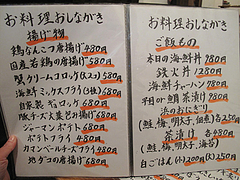 お料理おしながき
揚げ物
鶏なんこつ唐揚げ480円
国産若鶏の唐揚げ680円
蟹クリームコロッケ(2コ)580円
海鮮ミックスフライ(3枚)580円
自家製コロッケ 680円
豚チーズ大葉 680円
ジャーマンポテト 680円
ポテトフライ 480円
カマンベールチーズフライ 480円
地ダコの唐揚げ 580円
お料理おしながき
ご飯もの
本日の海鮮丼 980円
鉄火丼 1280円
海鮮チャーハン 980円
平目or鯛茶漬け 980円
おにぎり
(鮭、梅、明太子) 250円
茶漬け 各480円
(鮭、梅、明太、海苔)
白ごはん(小)200円(大)250円